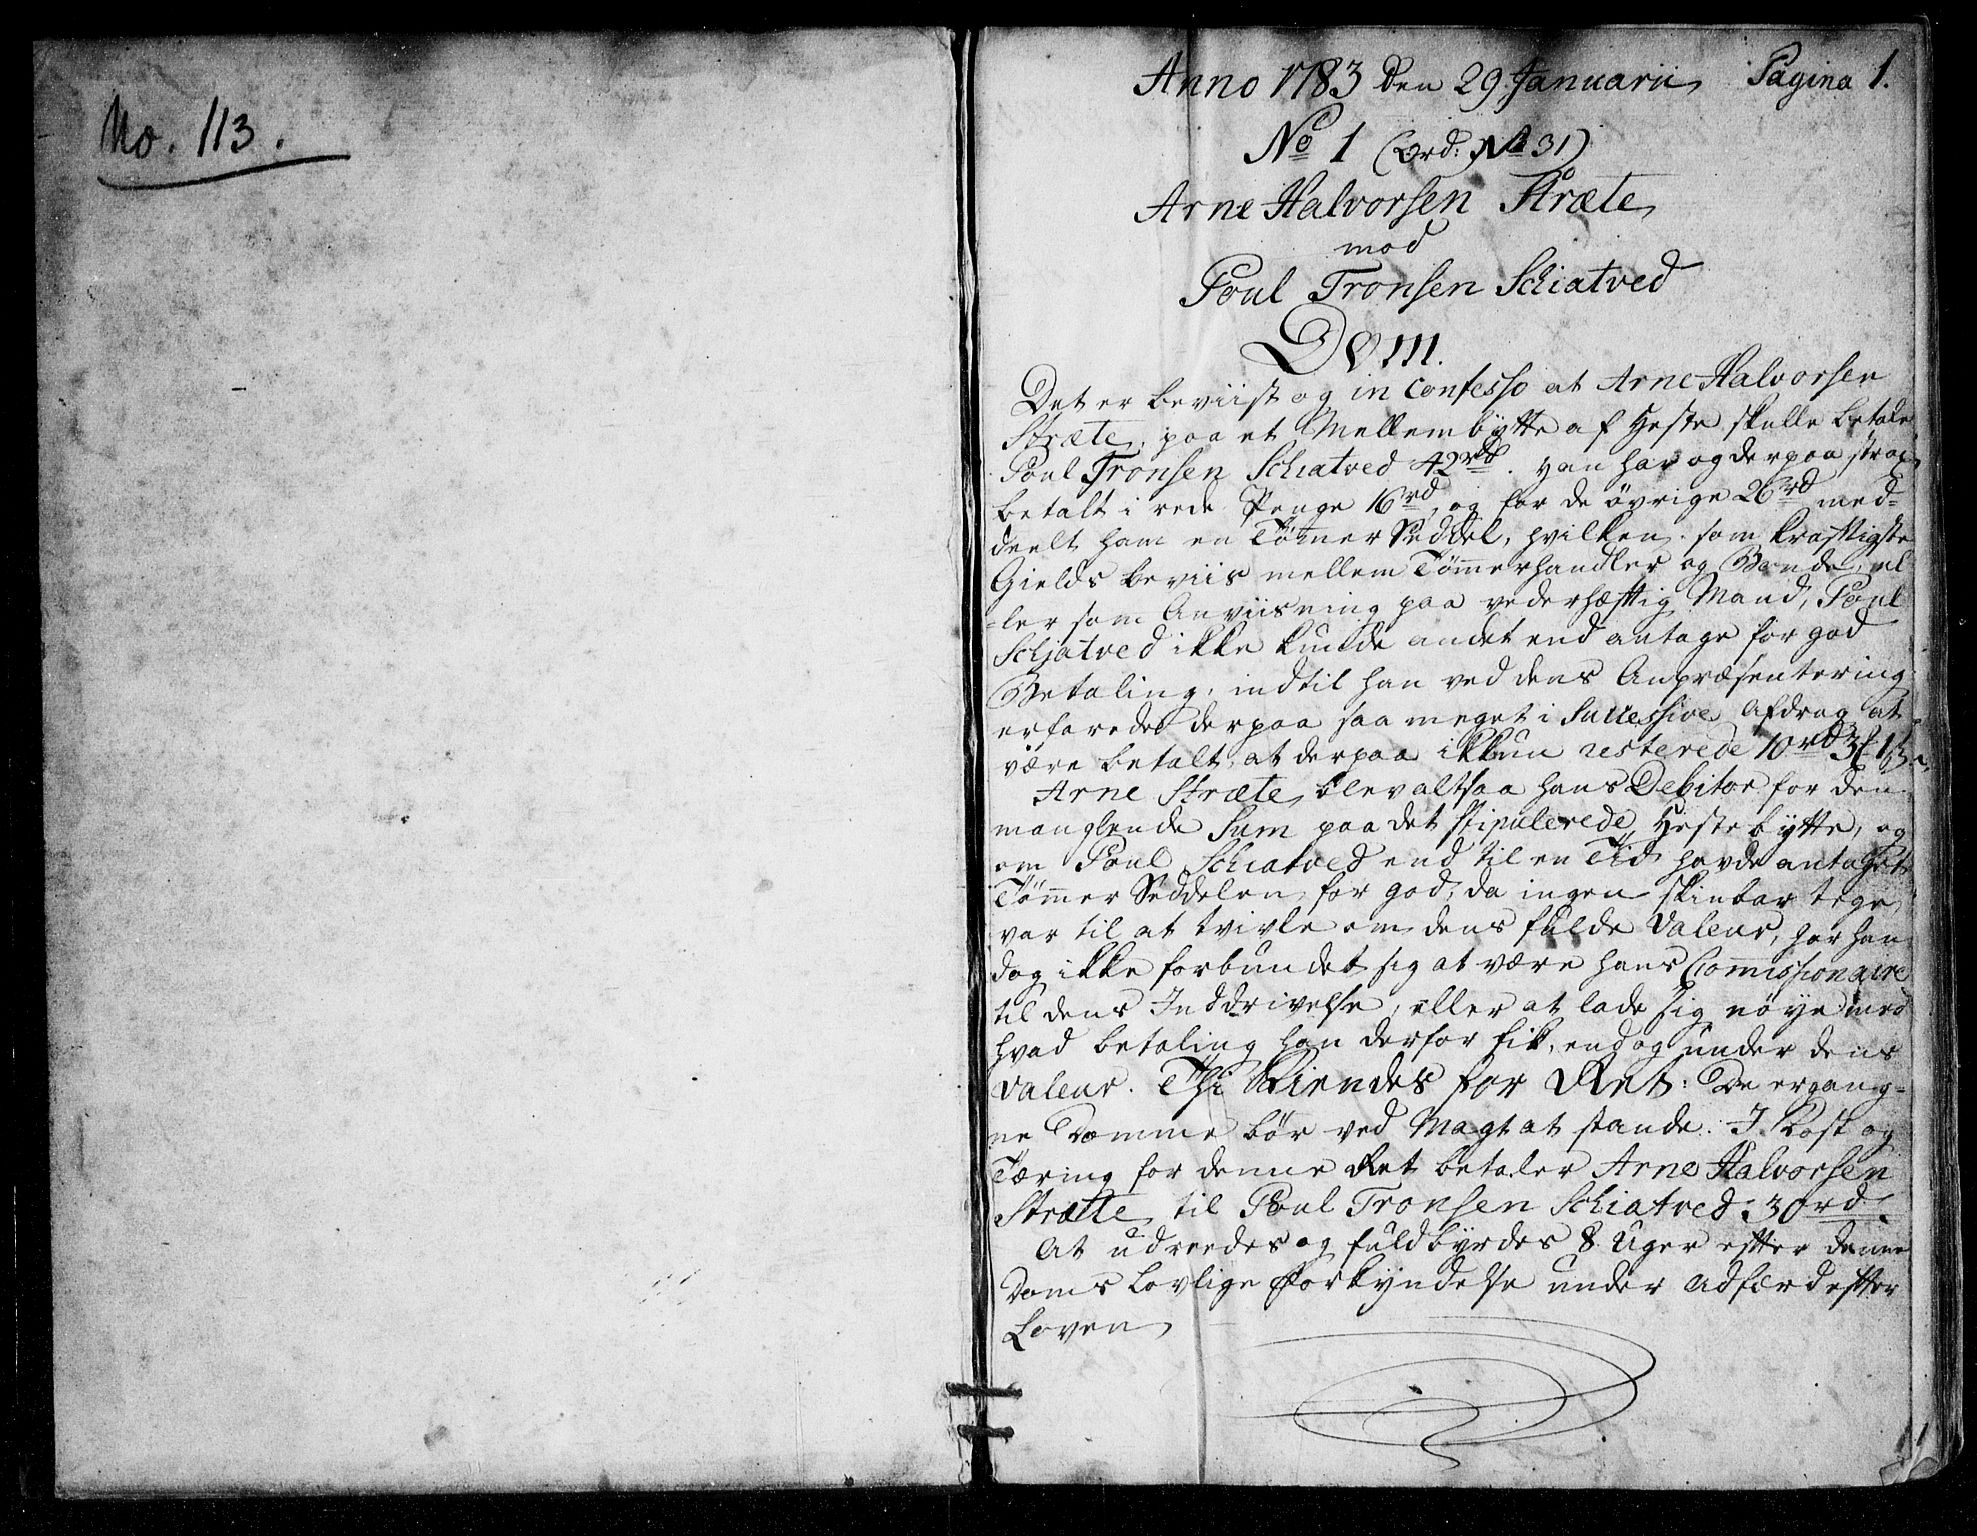 No. 113.
Anno 1783 den 29 Januarii Pagina 1.
No 1 (Ord: No 31)
Arne Halvorsen Stræte
mod
Poul Tronsen Schiatved
Dom.
Det er beviist og in Confesso at Arne Halvorsen
Stræte, paa et Mellembytte af Heste skulle betale
Poul Tronsen Schiatved 42 rd. Han har og derpaa strax
betalt i rede Penge 16 rd, og for de övrige 26 rd med-
deelt ham en Tömer Seddel, hvilken som kraftigste
Gields beviis mellem Tömerhandler og Bonde, el
-ler som Anviisning paa vederhæftig Mand, Poul
Schjatved ikke kunde andet end antage for god
Betaling, indtil han ved dens Anpræsentering
erfarede derpaa saa meget i Successive Afdrag at
være betalt, at derpaa ikkun resterede 10 rd
Arne Stræte blev altsaa hans Debitor for den
manglende Sum paa det stipulerede Hestebytte, og
om Poul Schiatved end til en Tid havde antaget
Tömer Seddelen for god, da ingen skinbar
var til at tvivle om dens fulde Valeur, har han
dog ikke forbundet sig at være hans Comissionaire
til dens Inddrivelse, eller at lade sig nöye med
hvad betaling han derfor fik, endog under dens
Valeur. Thi Kiendes for Ret: De ergang-
ne Domme bör ved Magt at stande. I Kost og
Tæring for denne Ret betaler Arne Halvorsen
Stræte til Poul Tronsen Schiatved 30 rd.
At udreedes og fuldbyrdes 8 Uger efter denne
Doms Lovlige Forkyndelse under Adfærd efter
Loven